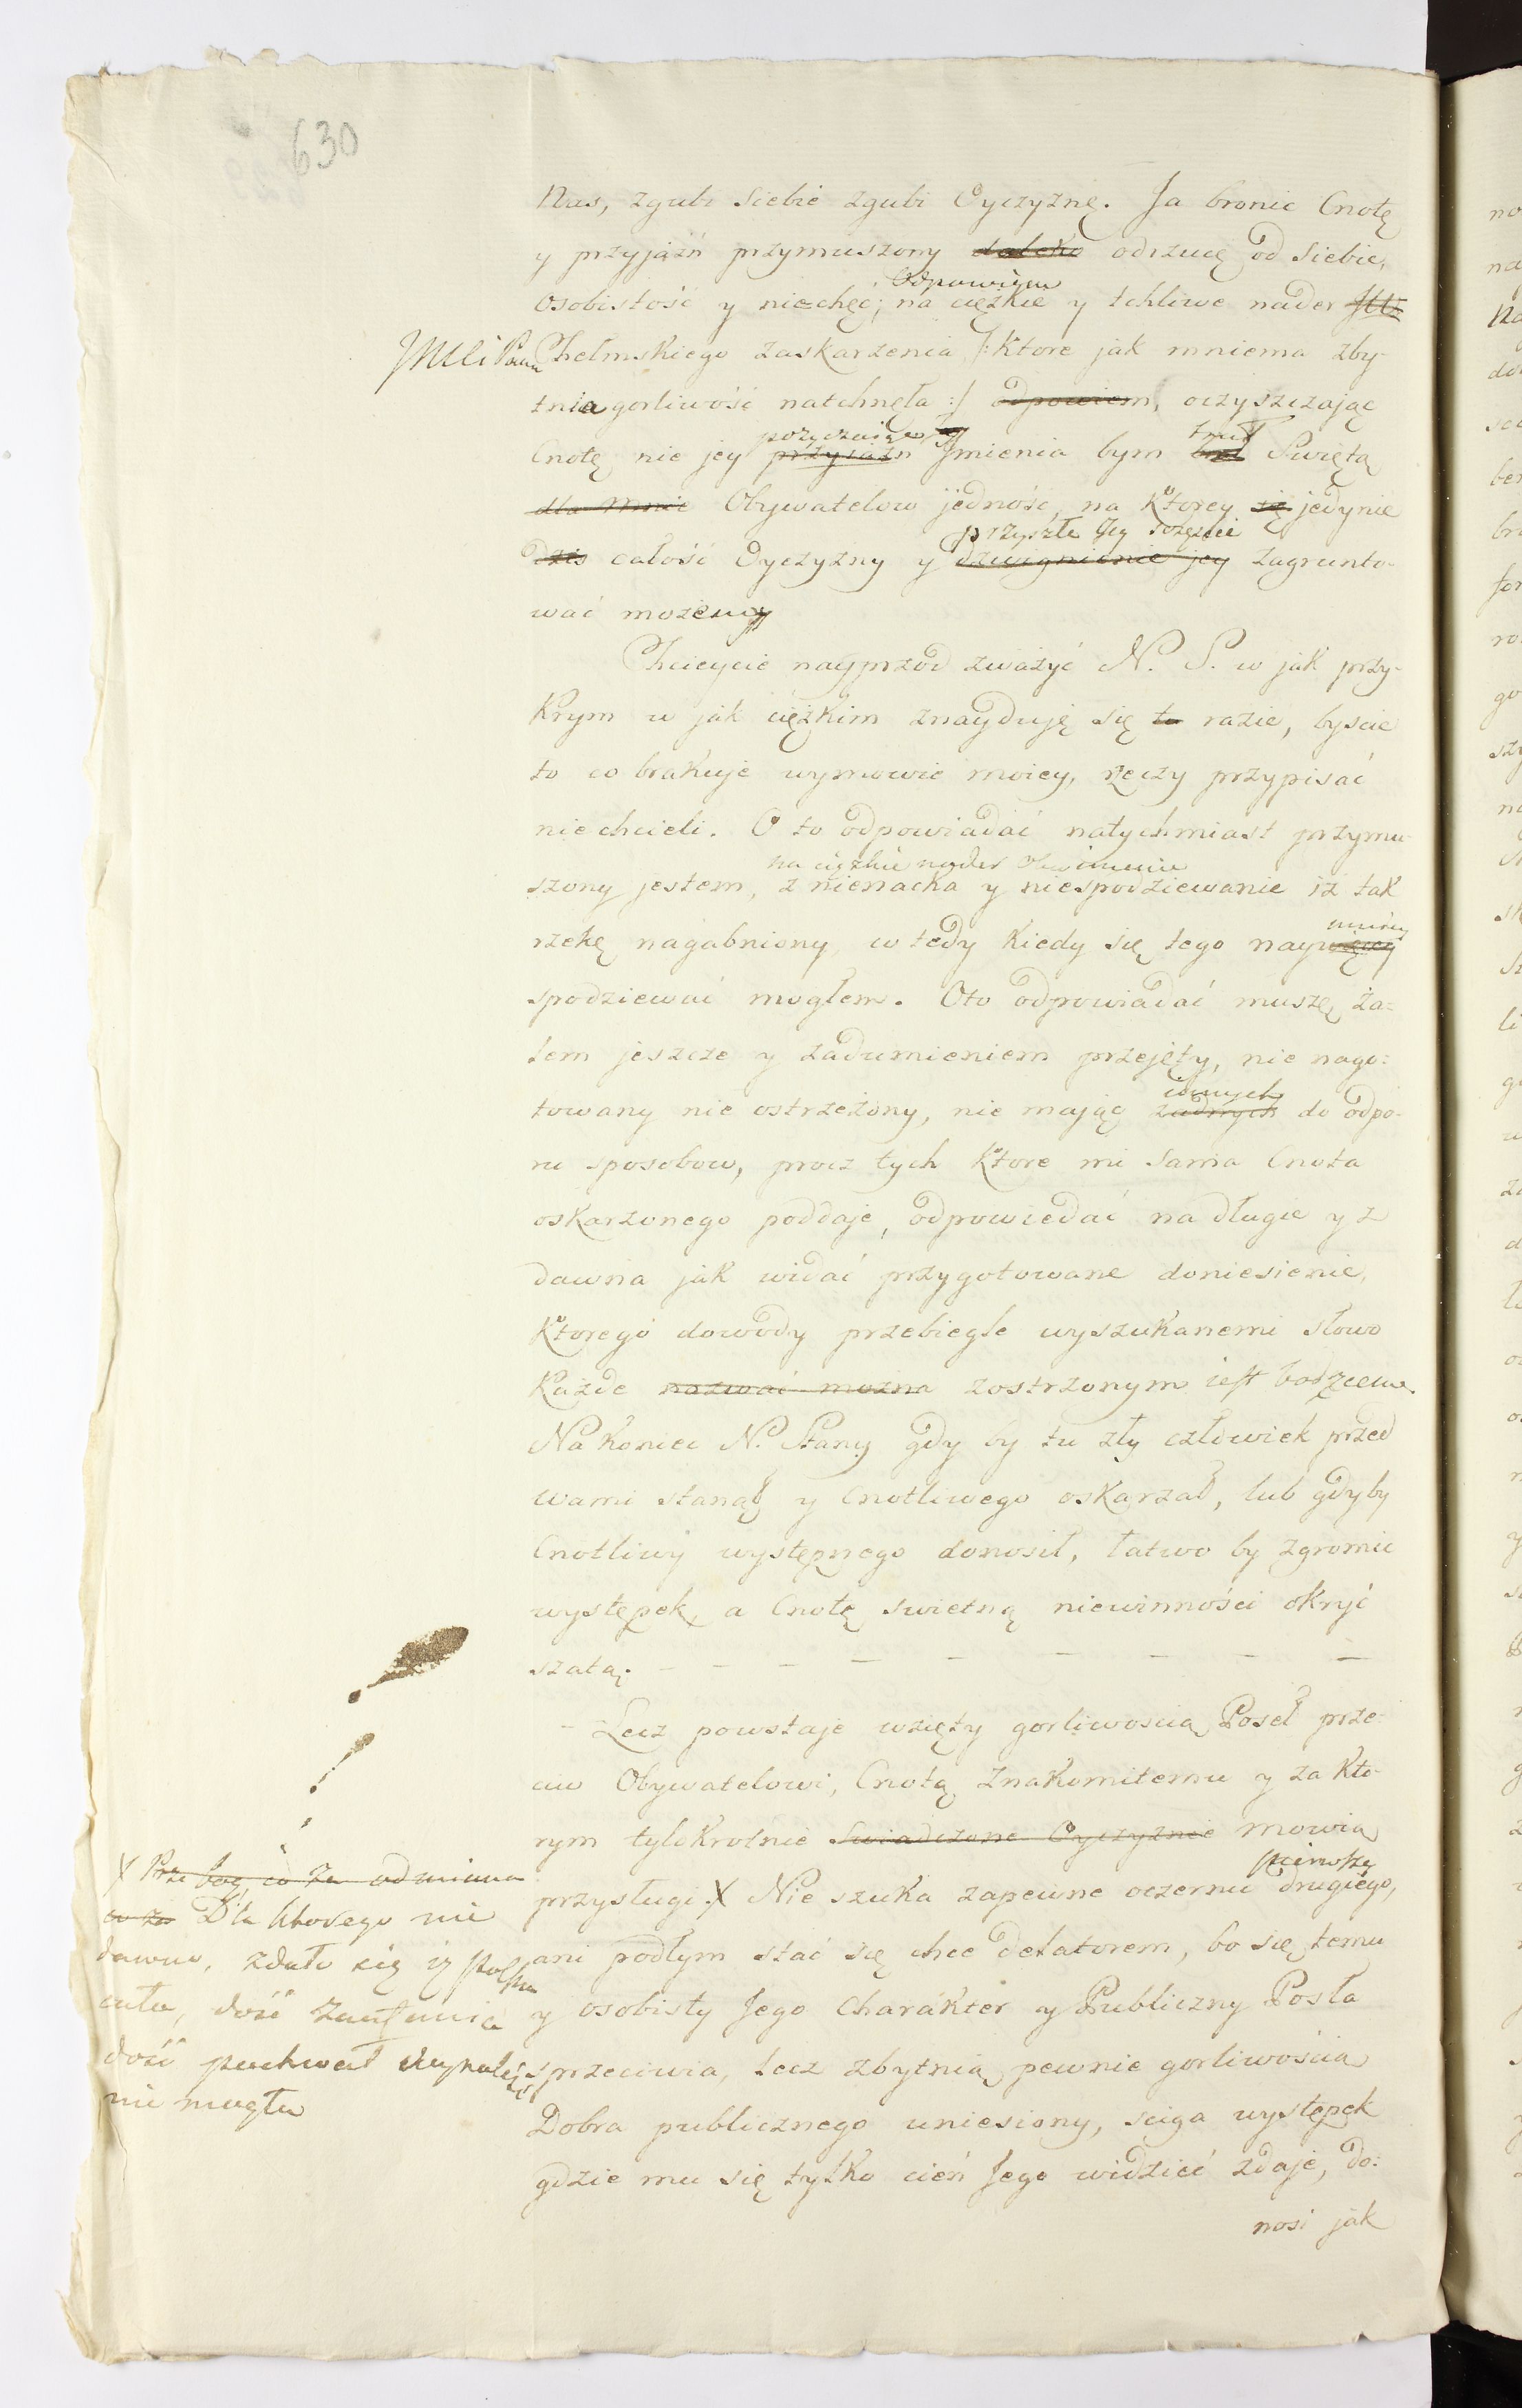 630
Nas, zgubi siebie zgubi Oyczyznę. Ja bronic Cnotę
y przyjaźń przymuszony daleko odrzucę od siebie,
Odpowiem
osobistość y niechęć; na ciężkie y tchliwe nader
JMCi Pana Chełmskiego zaskarzenia /: ktore jak mniema zby-
tnia gorliwość natchnęła :/ odpowiem, oczyszczając
pozyczaiąc
Cnotę nie jey przyiaźń Jmienia bym Swiętą
dla mnie Obywatelow jedność, na ktorey się jedynie
przyszłe Jey szczęście
dzis całość Oyczyzny y dzwignienie jey zagrunto-
wać możemy
Chcieycie nayprzod zważyć N. S. w jak przy-
krym w jak ciężkim znayduję się to razie, byscie
to co brakuje wymowie moiey, rzeczy przypisać
nie chcieli. O to odpowiadać natychmiast przymu-
na ciężkie nader
szony jestem, z nienacka y niespodziewanie iż tak
mniey
rzekę nagabniony, w tedy kiedy się tego naywięcey
spodziewać mogłem. Oto odpowiadać muszę ża-
lem jeszcze y zadumieniem przejęty, nie nago-
innych
towany nie ostrzeżony, nie mając żadnych do odpo-
ru sposobow, procz tych ktore mi sama Cnota
oskarzonego poddaje, odpowiedać na długie y z
dawna jak widać przygotowane doniesienie,
ktorego dowody przebiegle wyszukanemi słowo
każde nazwać można zostrzonym iest bodzcem.
Nakoniec N. Stany gdy by tu zły człowiek przed
wami stanął y Cnotliwego oskarzał, lub gdyby
Cnotliwy występnego donosił, łatwo by zgromic
występek, a Cnotę swietną niewinności okryć
szatą. — — — — — — — — —
– Lecz powstaje wzięty gorliwoscią Poseł prze-
ciw Obywatelowi, Cnotą znakomitemu y za kto-
rym tylekrotnie swiadczone Oyczyznie mowią
pierwszy
przysługi. X Nie szuka zapewne oczernic drugiego,
ani podłym stać się chce delatorem, bo się temu
y osobisty Jego charakter y Publiczny Posła
sprzeciwia, lecz zbytnią pewnie gorliwoscią
Dobra publicznego uniesiony, sciga występek
gdzie mu się tylko cień Jego widzieć zdaje, do-
nosi jak
X Prze bog, co za odmiana
co za Dla ktorego nie
dawno, zdało się iż Polska
cała, dość zaufania
dość pochwał wynaleść
nie mogła